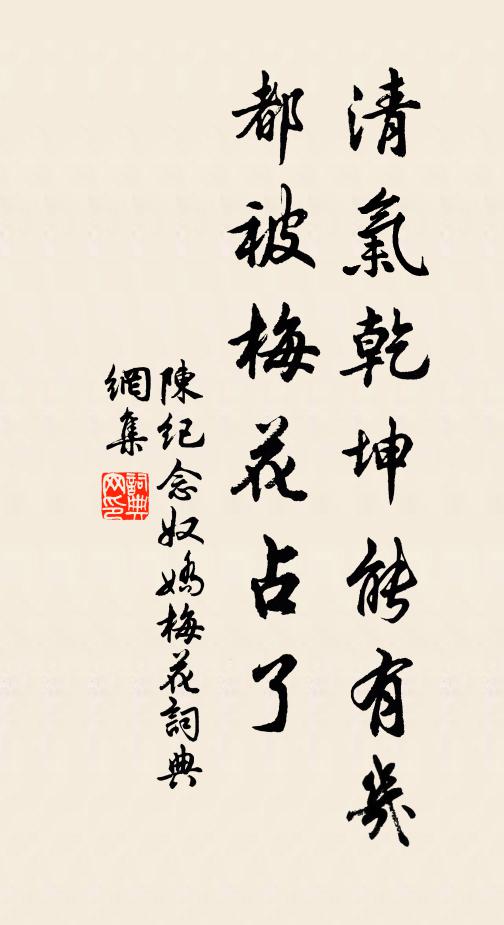 清氣乾坤能有幾
都被梅花占了
陳紀念奴嬌梅花詞典
網集
詞典
网印